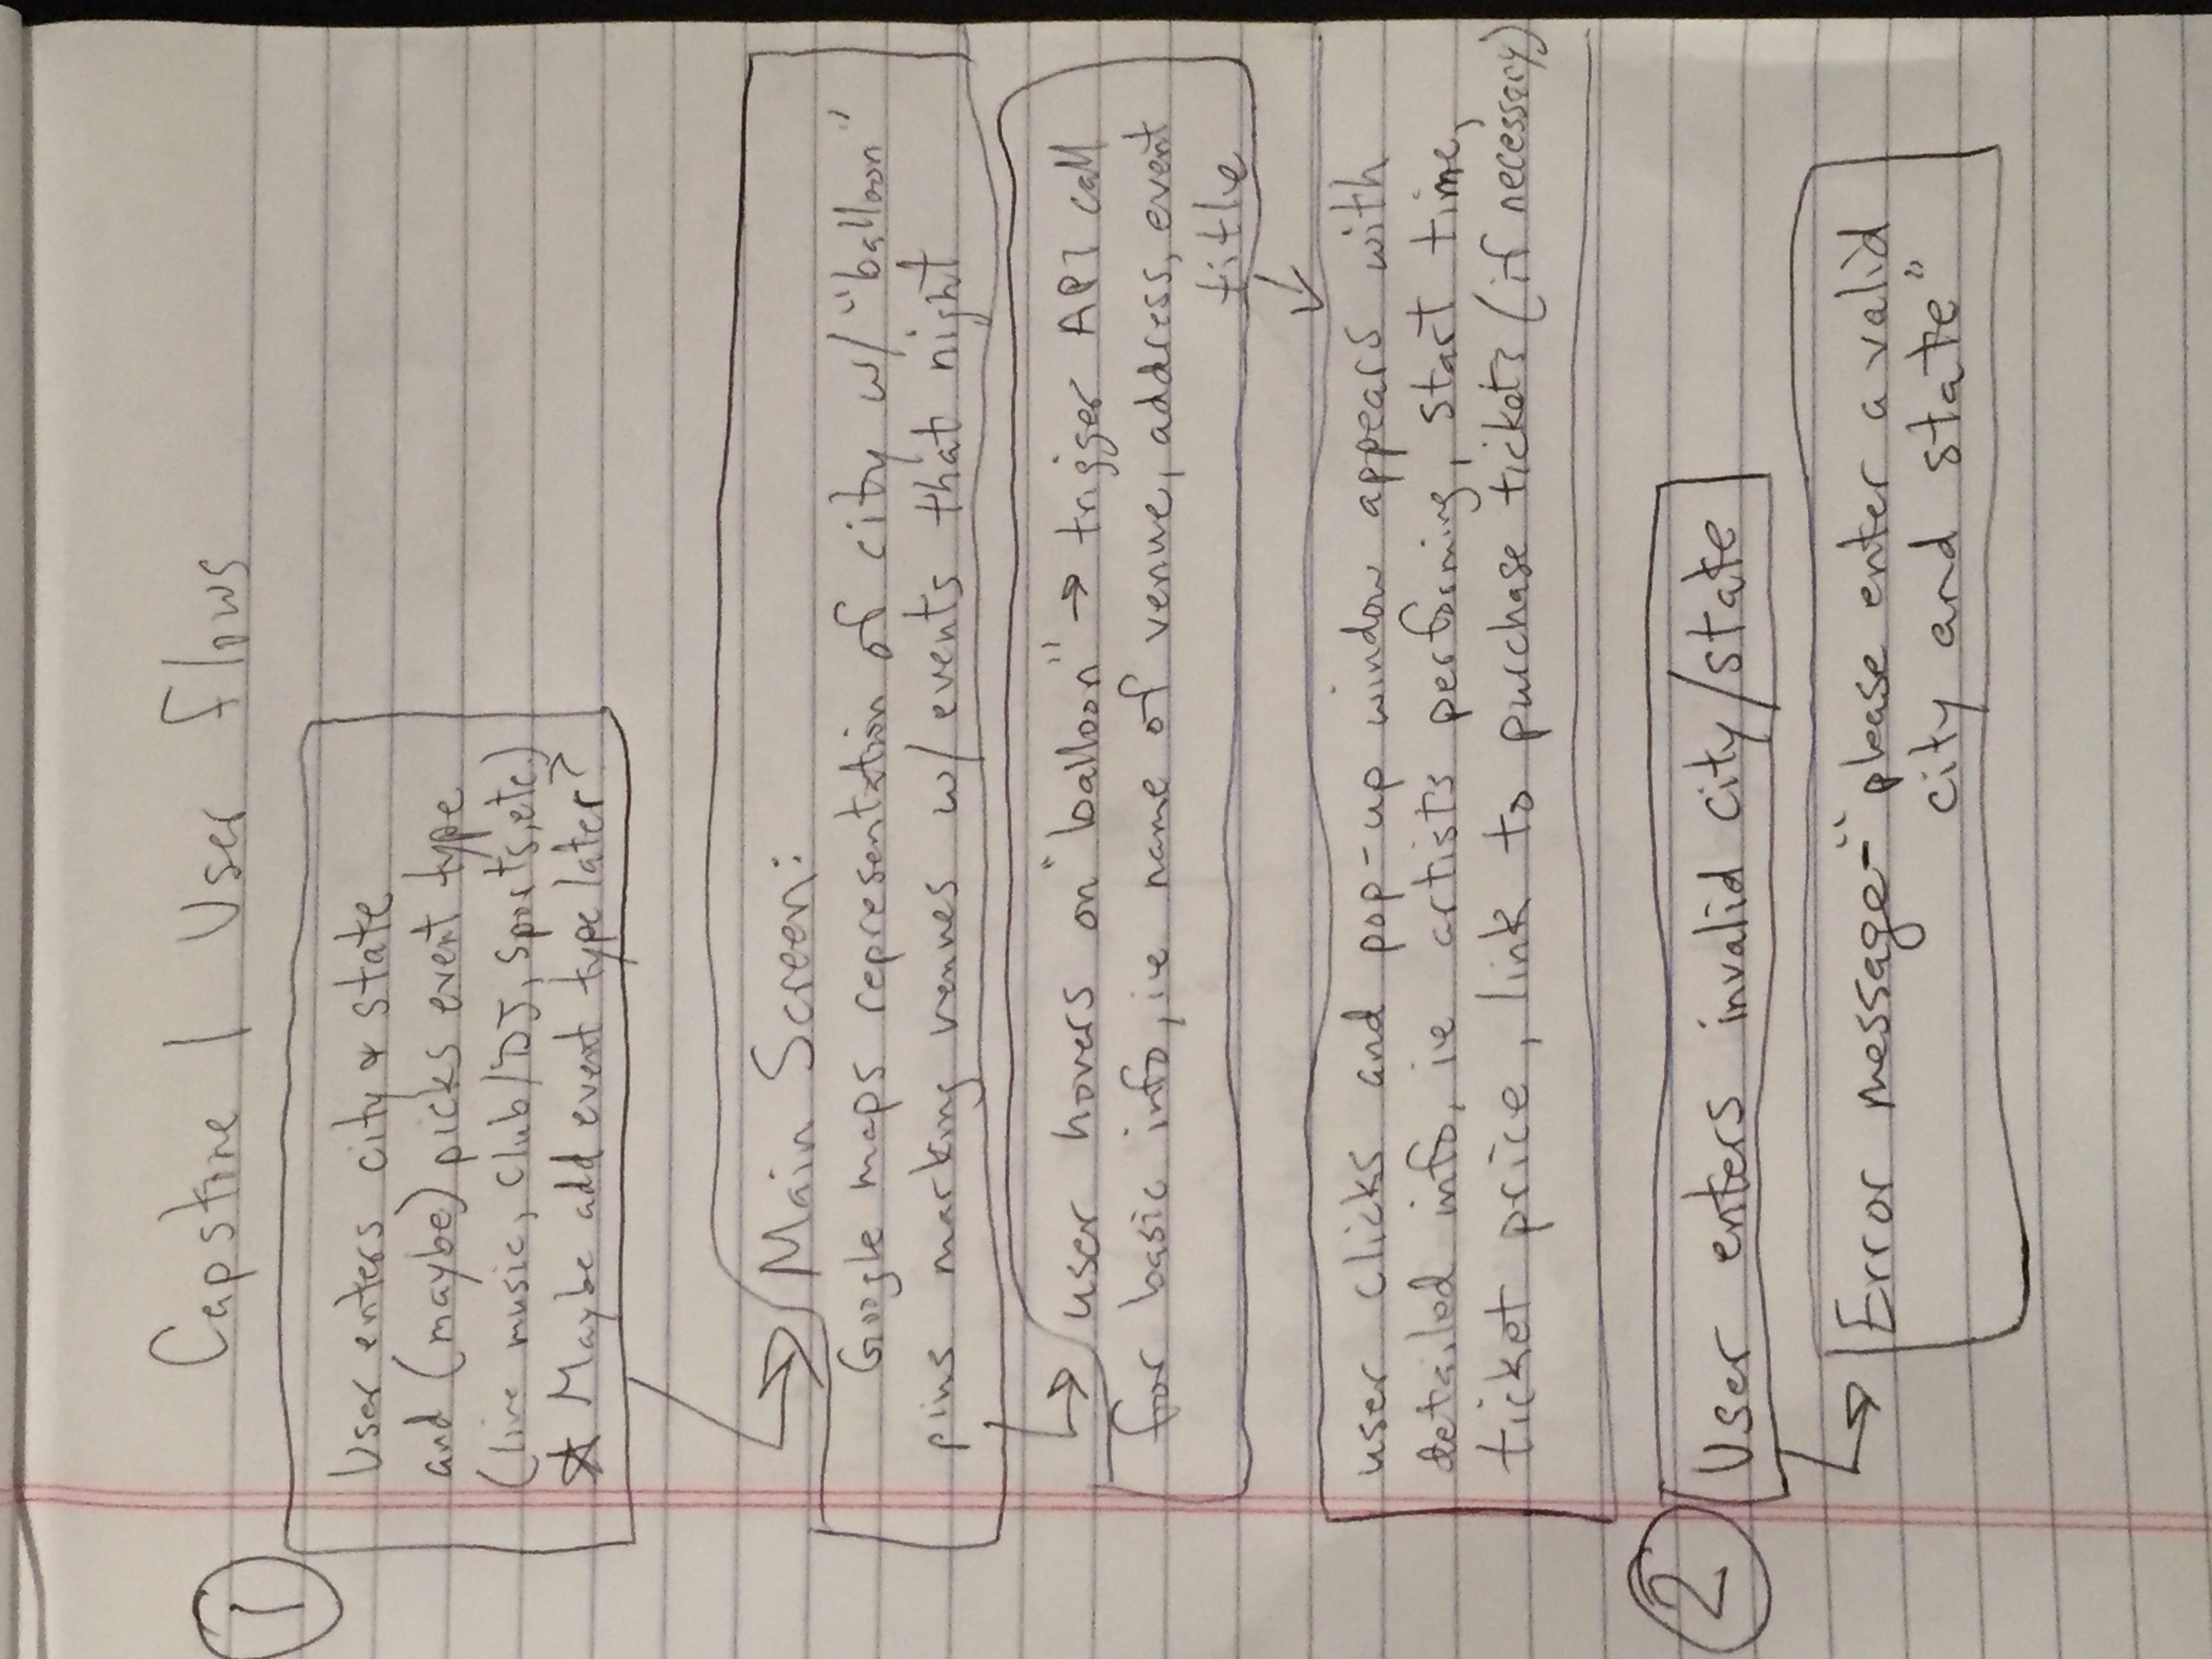 Capstone 1 User Flows
1
User enters city & state
and (maybe) picks event type
(live music, club/DJ, sports, etc.)
☆ Maybe add event type later?
Main Screen:
Google maps representation of city w/ "balloon"
pins marking venues w/ events that night
user hovers on "balloon" → trigger API call
for basic info, ie name of venue, address, event
title
user clicks and pop-up window appears with
detailed info, ie artists performing, start time,
ticket price, link to purchase tickets (if necessary)
2
User enters invalid city/state
Error message - "please enter a valid
city and state"